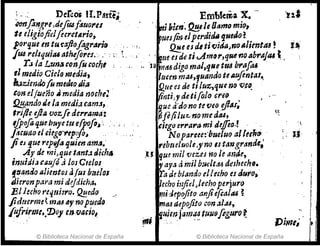 Detcos II. Parte,
confangre, de sus fauores
te eligio fiel secretario,
porque en tu casto sagrario
sus reliquias athesores.
Ya la Luna con su coche
el medio Cielo media,
haziendo su medio dia
con el sueño à media noche:
Quando de la media cama,
triste ella voz, se derrama:
esposa que huye tu esposo,
Iacuso el ciego reposo,
si es que reposa quien ama.
Ay de mi, que tanta dicha
inuidia causò à los Cielos
quando alientos à sus buelos
dieron para mi desdicha.
El lecho requiero. Quedo
sidusermel mas ay no puedo
sufrirme, Doy en vacio,
mi
Emblema X.
12
mi bien. Que le llamo mio,
pues sin el perdida quedo?
Que es de ti vida, no alientas?
que es de ti Amor, que no abrasas
mas digo mal, que tus brasas
lucen mas, quando te ausentas,
Que es de ti luz, que no veo
senti, y de ti solo creo
que à do no te veo estas,
fè si luz. no me das,
ciego errara mi desseo!
No parece: buelvo al lecho
rebueluole, y no es tan grande,
que mil vezes no le ande,
y aya à mil bueltas deshecho.
Ya de blando el lecho es duro,
lecho infiel, lecho perjuro
mi deposito assi escalas
mas deposito con alas,
quien jamas tuuo seguro?
Dime,
© Biblioteca Nacional de España
© Biblioteca Nacional de España